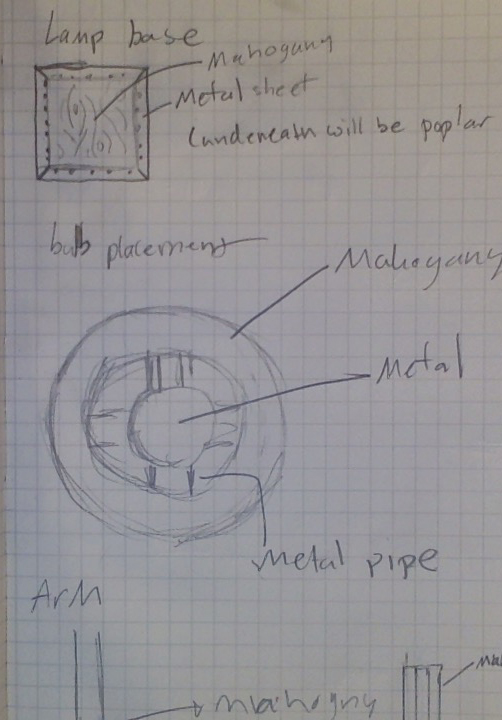 Lamp base
Mahogany
Metal sheet
(underneath will be poplar
bulb placement
Mahogany
Metal
Metal pipe
ArM
Miahogny